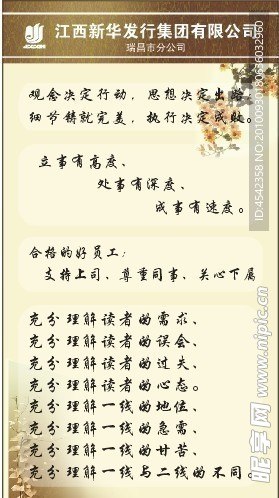 江西新华发行集团有限公司
瑞昌市分公司
观念决定行动，思想决定出路，
细节铸就完美，执行决定成败。
立事有高度、
处事有深度、
成事有速度。
合格的好员工：
支持上司、尊重同事、关心下属
充分理解读者的需求、
充分理解读者的误会、
充分理解读者的过失、
充分理解读者的心态。
充分理解一线的地位、
充分理解一线的急需、
充分理解一线的甘苦、
充分理解一线与二线的不同。
昵享网 www.nipic.cn
ID:4542358 NO:20100930180636032960